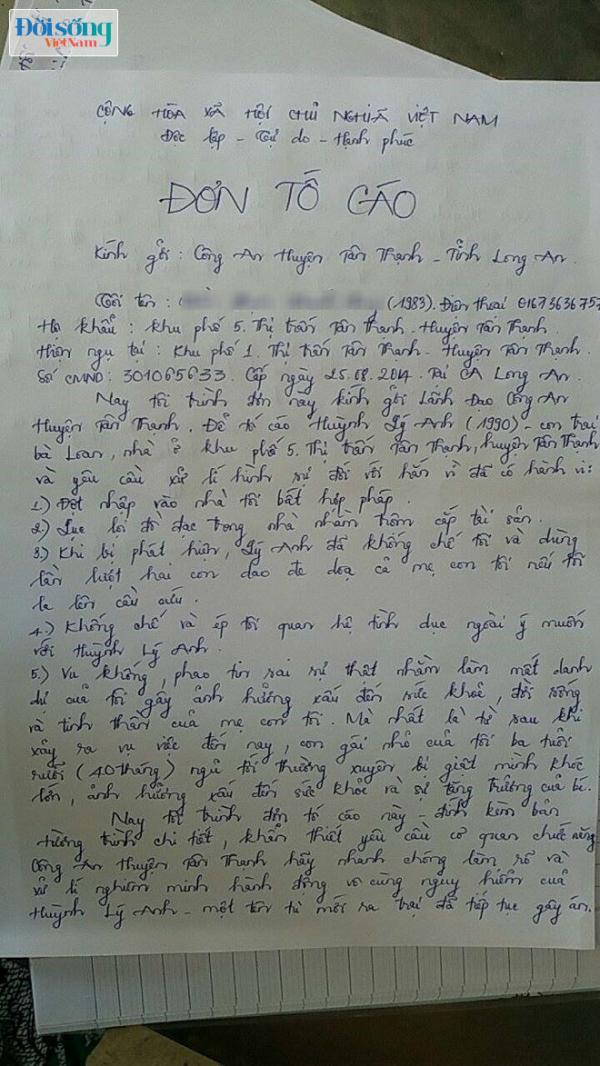 Đời sống
ViệtNam
CỘNG HÒA XÃ HỘI CHỦ NGHĨA VIỆT NAM
Độc lập - Tự do - Hạnh phúc
ĐƠN TỐ CÁO
Kính gởi: Công An Huyện Tân Thạnh - Tỉnh Long An.
Tôi tên: (1983). Điện thoại
Hộ khẩu: Khu phố 5. Thị trấn Tân Thạnh. Huyện Tân Thạnh.
Hiện ngụ tại: Khu phố 1. Thị trấn Tân Thạnh - Huyện Tân Thạnh.
Số CMND: 301065633. Cấp ngày 25.08.2014. Tại CA Long An.
Nay tôi trình đơn này kính gởi Lãnh Đạo Công An
Huyện Tân Thạnh. Để tố cáo Huỳnh Lý Anh (1990) - con trai
bà Loan, nhà ở khu phố 5. Thị trấn Tân Thạnh, huyện Tân Thạnh
và yêu cầu xử lí hình sự đối với hắn vì đã có hành vi:
1.) Đột nhập vào nhà tôi bất hợp pháp.
2.) Lục lọi đồ đạc trong nhà nhằm trộm cắp tài sản.
3.) Khi bị phát hiện, Lý Anh đã khống chế tôi và dùng
lần lượt hai con dao đe dọa cả mẹ con tôi nếu tôi
la lên cầu cứu.
4.) Khống chế và ép tôi quan hệ tình dục ngoài ý muốn
với Huỳnh Lý Anh.
5.) Vu khống, phao tin sai sự thật nhằm làm mất danh
dự của tôi gây ảnh hưởng xấu đến sức khoẻ, đời sống
và tinh thần của mẹ con tôi. Mà nhất là từ sau khi
xảy ra vụ việc đến nay, con gái nhỏ của tôi ba tuổi
rưỡi (40 tháng) ngủ tối thường xuyên bị giật mình khóc
lớn, ảnh hưởng xấu đến sức khỏe và sự tăng trưởng của bé.
Nay tôi trình đơn tố cáo này - đính kèm bản
tường trình chi tiết, khẩn thiết yêu cầu cơ quan chức năng
Công An Huyện Tân Thạnh hãy nhanh chóng làm rõ và
xử lí nghiêm minh hành động vô cùng nguy hiểm của
Huỳnh Lý Anh - một tên tù mới ra trại đã tiếp tục gây án.